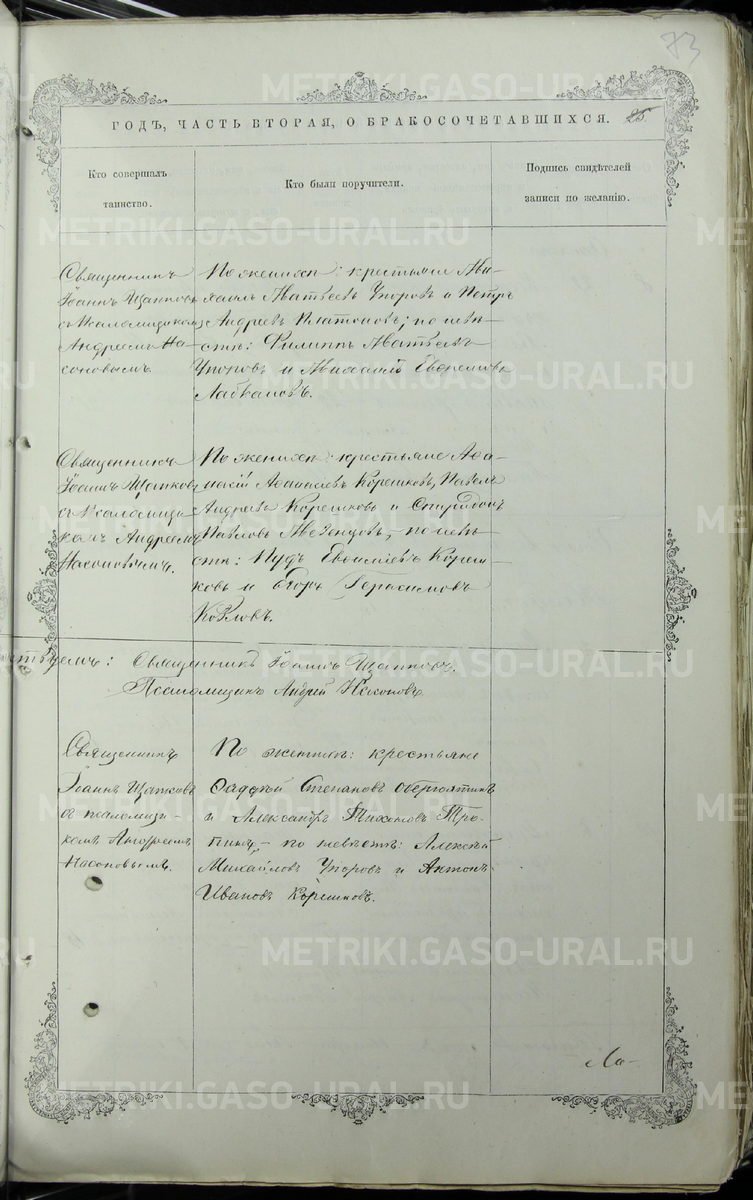 73
ГОДЪ, ЧАСТЬ ВТОРАЯ, О БРАКОСОЧЕТАВШИХСЯ. 25
Кто совершалъ
таинство.
Кто были поручители.
Подпись свидѣтелей
записи по желанію.
Священникъ
Іоаннъ Щапковъ
съ псаломщикомъ
Андреемъ На-
соновымъ
По женихѣ: крестьяне Ми-
хаилъ Матвѣевъ Упоровъ и Петръ
Андреевъ Платоновъ; по невѣ-
стѣ: Филиппъ Матвѣевъ
Упоровъ и Михаилъ
Священникъ
Іоаннъ Щапковъ
съ псаломщи-
комъ Андреемъ
Насоновымъ.
По женихѣ: крестьяне Аѳа-
насій Аѳанасіевъ Корешковъ, Павелъ
Андреевъ Корешковъ и Спиридонъ
Павловъ Мезенцовъ, – по невѣ-
стѣ: Пудъ Евѳиміевъ Кореш-
ковъ и Егоръ Герасимовъ
Козловъ.
Священникъ Іоаннъ Щапковъ.
Псаломщикъ Андрей Насоновъ
Священникъ
Іоаннъ Щапковъ
съ псаломщи-
комъ Андреемъ
Насоновымъ.
По женихѣ: крестьяне
Ѳаддей Степановъ
и Александръ Тихоновъ Тро-
пинъ, – по невѣстѣ: Алексѣй
Михайловъ Упоровъ и Антонъ
Ивановъ Корешковъ.
METRIKI.GASO-URAL.RU